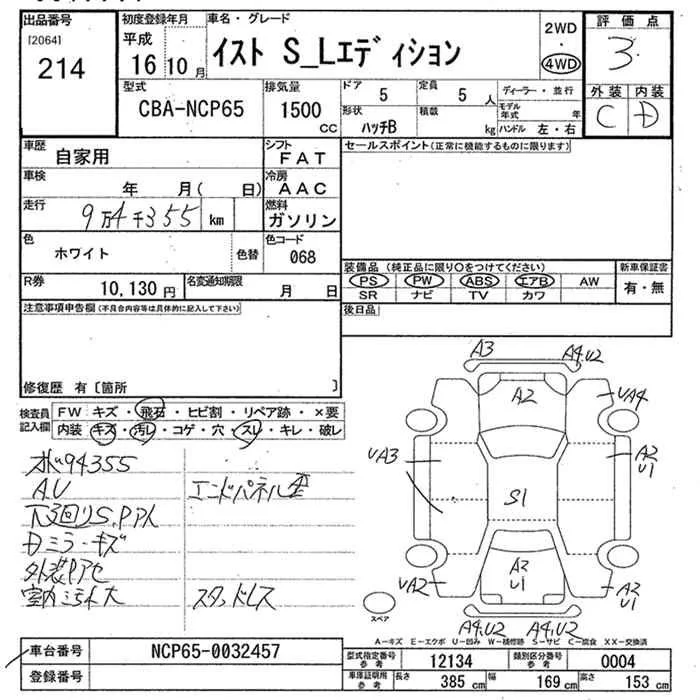 出品番号 初度登録年月 車名・グレード 評価点
[2064] 214
平成 16 10月 イスト S_Lエディション 2WD・4WD 3
型式 排気量 ドア 定員 ディーラー・並行 外装 内装
CBA-NCP65 1500 CC 5 5人 モデル年式 年 C D
形状 積載
ハッチB kg ハンドル 左・右
車歴 自家用 シフト FAT セールスポイント(正常に機能するものに限ります)
車検 年 月( 日) 冷房 AAC
走行 9万4千355 km 燃料 ガソリン
色 ホワイト 色替 色コード 068
装備品 (純正品に限り○をつけてください) 新車保証書
R券 10,130円 名変通知期限 月 日 PS PW ABS エアB AW 有・無
SR ナビ TV カワ
注意事項申告欄(不具合内容等は具体的に記入して下さい) 後日品
修復歴 有〔箇所 〕
検査員記入欄 FW キズ・飛石・ヒビ割・リペア跡・×要
内装 キズ・汚レ・コゲ・穴・スレ・キレ・破レ
A3 A4,U2
A2 UA4
UA3 A2 U1
S1
A2 U1
UA2 A2 U1
A4,U2 A4,U2
94355
A.U エンドパネル
下回りS,P
Dミラーキズ
外装
室内汚れ大 スタッドレス
スペア
A-キズ E-エクボ U-凹み W-補修跡 S-サビ C-腐食 XX-交換済
車台番号 NCP65-0032457 型式指定番号 参考 12134 類別区分番号 参考 0004
登録番号 車庫証明用 参考 長さ 385 cm 幅 169 cm 高さ 153 cm